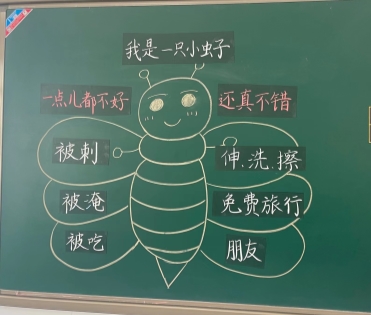 我是一只小虫子
一点儿都不好
还真不错
被刺
伸.洗.擦
被淹
免费旅行
被吃
朋友